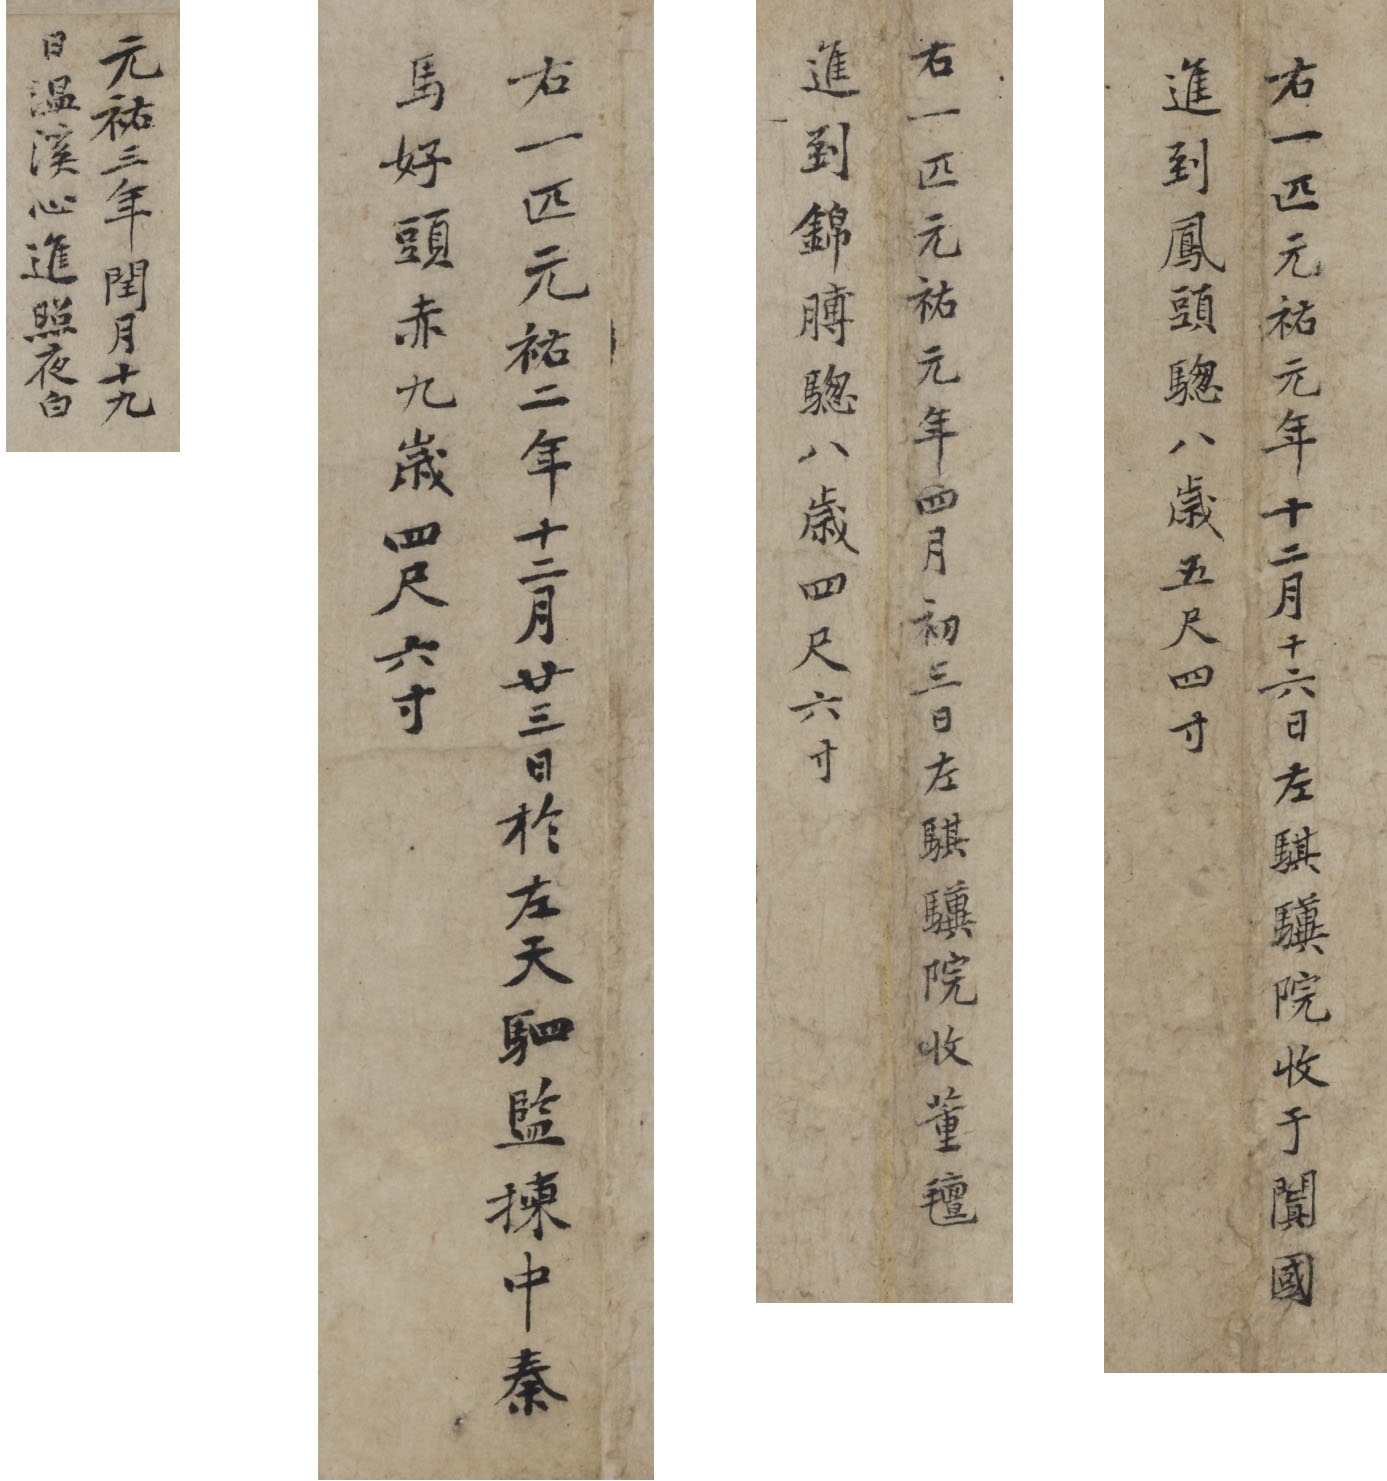 右一匹元祐元年十二月十六日左騏驥院收于闐國
進到鳳頭驄八歲五尺四寸
右一匹元祐元年四月初三日左騏驥院收董氊
進到錦膊驄八歲四尺六寸
右一匹元祐二年十二月廿三日於左天駟監揀中秦
馬好頭赤九歲四尺六寸
元祐三年閏月十九
日温溪心進照夜白